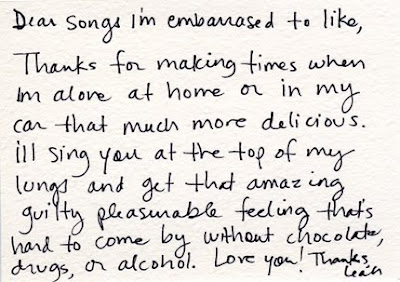 Dear Songs I'm embarrased to like,
Thanks for making times when
Im alone at home or in my
car that much more delicious.
i'll sing you at the top of my
lungs and get that amazing
guilty pleasurable feeling that's
hard to come by without chocolate,
drugs, or alcohol. Love you! Thanks,
Leah